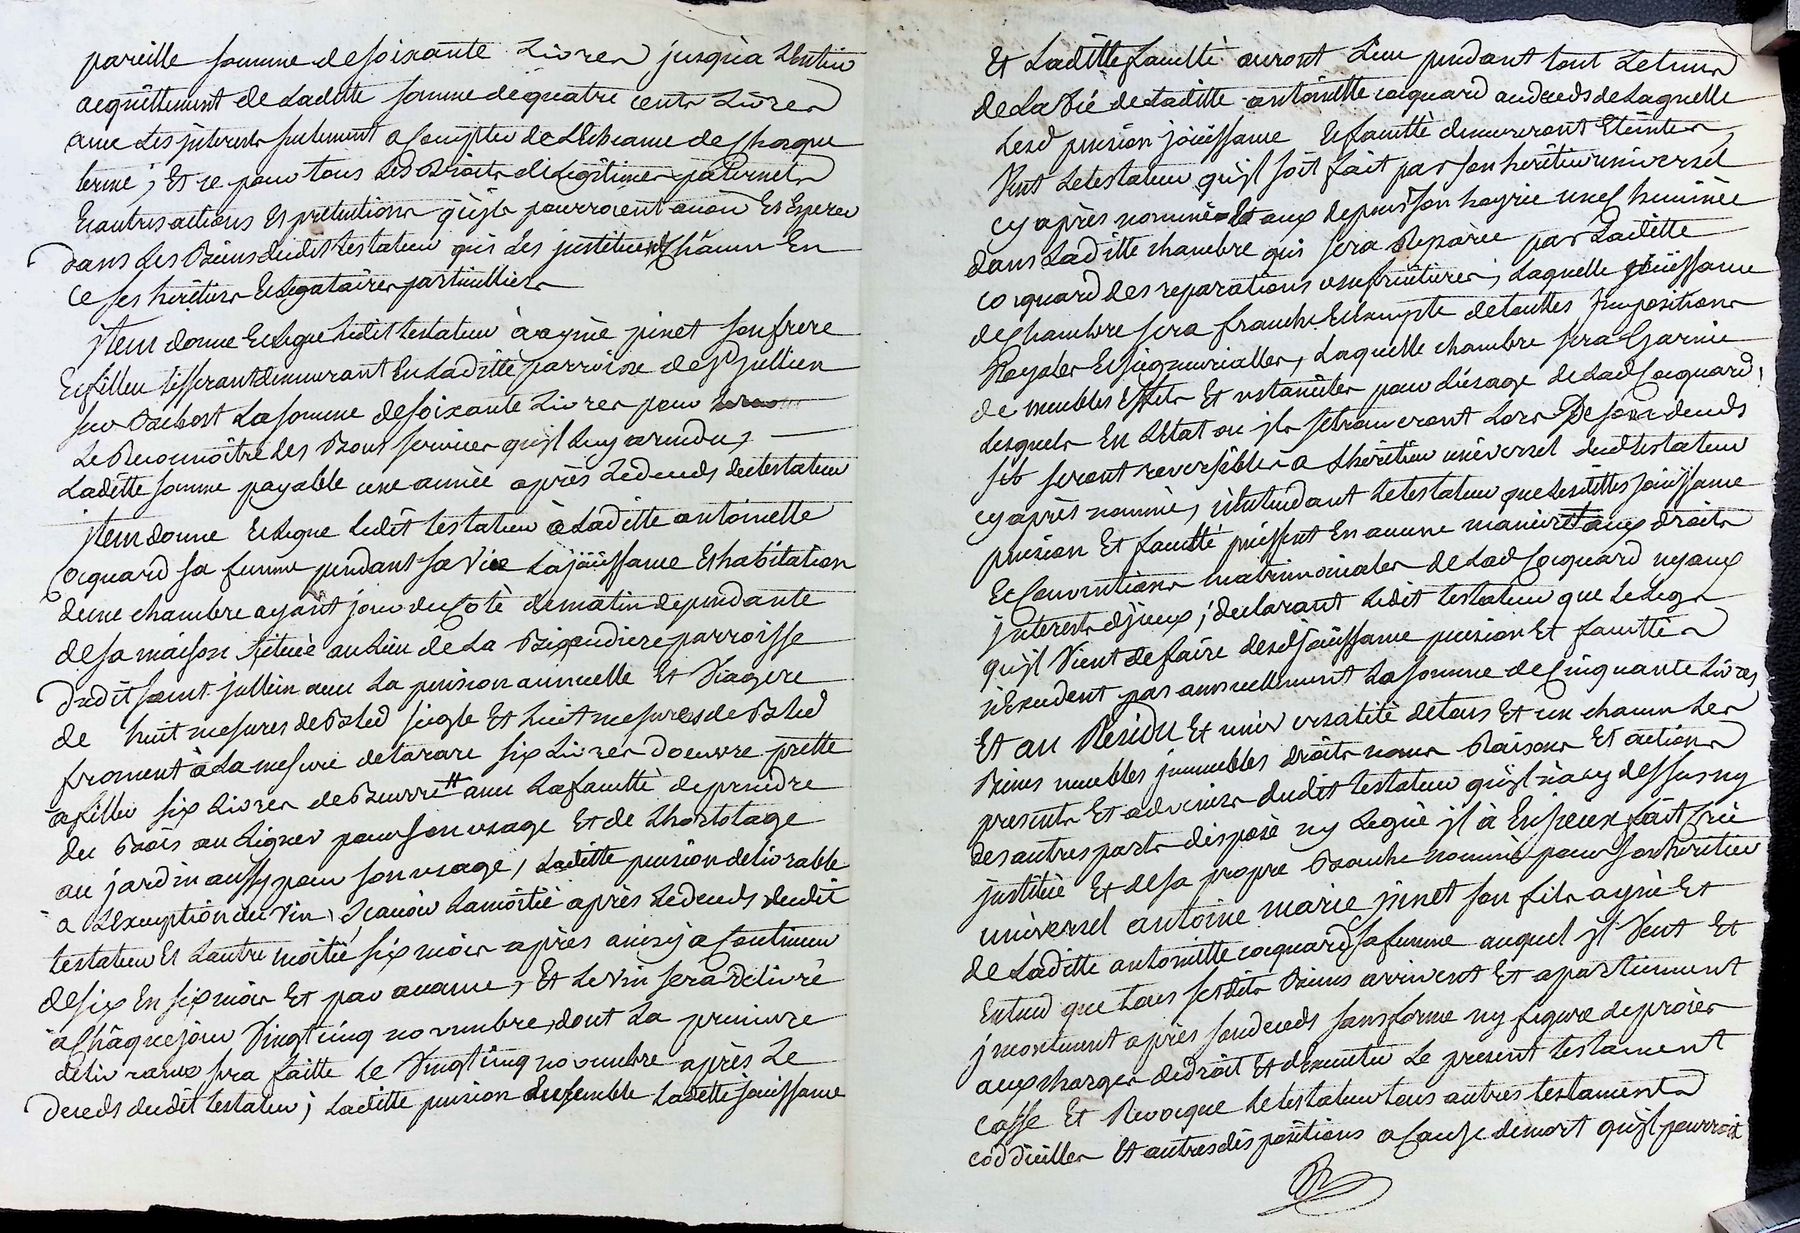 pareille somme de soixante Livres jusqu'a L'entier
acquittement de Ladte somme de quatre cents Livres
avec Les jnterests seulement a Compter de L'Echeance de Chaque
terme; Et ce pour tous Les Droits de Legitimes paternels
Et autres actions Et pretentions qu'jls pourroient avoir Et Esperer
dans Les Biens dudit testateur qui Les jnstitue Châcun En
Ce ses heritiers Et Legataires particulliers
jtem donne Et Legue Ledit testateur à aynè pinet son frere
Et filleu tisserant demeurant En Laditte parroisse de St Jullien
sur Bibost La somme de soixante Livres pour
Le Reconnoître des Bons services qu'jl Luy a rendu,
Laditte somme payable une année après Le deceds du testateur
jtem donne Et Legue Ledit testateur à Laditte antoinette
Cocquard sa femme pendant sa Vie La joüissance Et habitation
d'une chambre ayant jour du Cotè de matin dependante
de sa maison Scituèe au Lieu de La Bigaudiere parroisse
dudit saint jullien avec La pension annuelle Et Viagere
de huit mesures de Bled seigle Et huit mesures de Bled
froment à La mesure de tarare six Livres d'oeuvre prette
a filler six Livres de Beurre # avec La facultè de prendre
du Bois au Ligner pour son usage Et de L'hortolage
au jardin aussy pour son usage, Laditte pension delivrable
à L'Exception du Vin, Sçavoir La moitié après Le deceds dudit
testateur Et L'autre moitié six mois après ainsy a Continuer
de six En six mois Et par avance, Et Le Vin sera délivrè
à Châque jour Vingt cinq novembre, dont La premiere
delivrance sera faitte Le Vingt cinq novembre après Le
deceds dudit testateur; Laditte pension Ensemble Laditte joüissance
Et Laditte facultè auront Lieu pendant tout Le tems
de La Vie de Laditte antoinette cocquard au deceds de Laquelle
Lesd pension joüissance Et facultè demeureront Eteintes,
Veut Le testateur qu'jl soit fait par son heritier universel
cy après nommè Et aux depens de son hoyrie une Cheminèe
dans Laditte chambre qui sera Reparèe par Laditte
cocquard des reparations usufruitieres; Laquelle joüissance
de Chambre sera franche Et Exempte de touttes Jmpositions
Royales Et Seigneurialles, Laquelle chambre sera Garnie
de meubles Effets Et ustanciles pour L'usage de Lad Cocquard,
Lesquels En L'Etat ou jls se trouveront Lors De son deceds
seront reversibles a L'heritier universel dud testateur
cy après nommè, n'Entendant Le testateur que Lesdittes joüissance
pension Et facultè puissent En aucune maniere aux droits
Et Conventions matrimoniales de Lad Cocquard ny aux
jnterests d'jceux; declarant Ledit testateur que Le Legs
qu'jl Vient de faire desd joüissance pension Et facultès
n'Excedent pas annuellement La somme de Cinquante Livres
Et au Residu Et universalité de tous Et un chacun Les
Biens meubles jmmeubles droits noms Raisons Et actions
presents Et advenirs dudit testateur qu'jl n'a cy dessus ny
des autres parts disposè ny Leguè jl à En jceux fait Crée
jnstituè Et de sa propre Bouche nommè pour son heritier
universel antoine marie pinet son fils aynè Et
de Laditte antoinette cocquard sa femme auquel jl Veut Et
Entend que tous sesdits Biens arrivent Et apartiennent
jncontinent après son deceds sans forme ny figure de procès
aux charges de droit Et d'Executer Le present testament
Casse Et Revocque Le testateur tous autres testaments
coddicilles Et autres dispositions a Cause de mort qu'jl pourroit